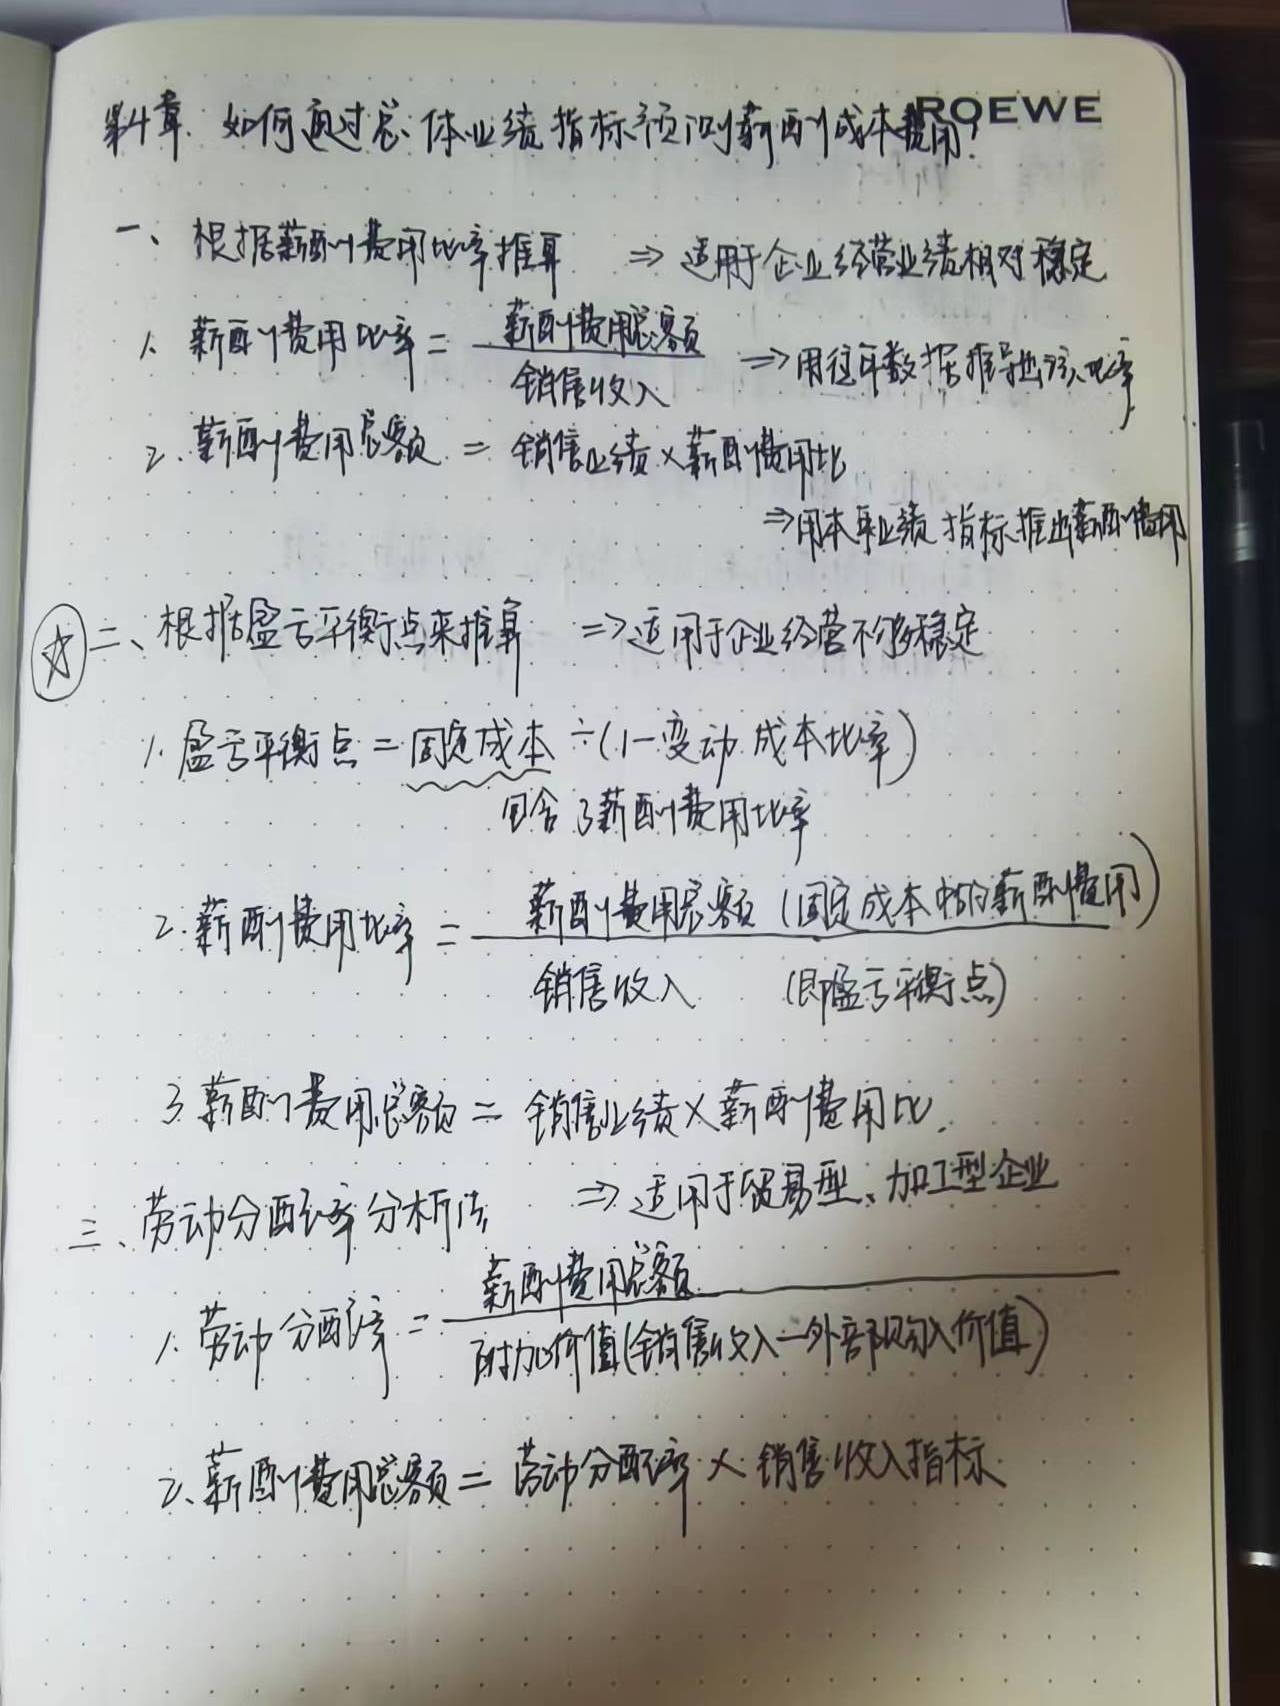 ROEWE
第4章. 如何通过总体业绩指标预测薪酬成本费用?
一、根据薪酬费用比率推算 ⇒ 适用于企业经营业绩相对稳定
1. 薪酬费用比率 = 薪酬费用总额 ⇒ 用往年数据推导出该比率
销售收入
2. 薪酬费用总额 = 销售业绩×薪酬费用比
⇒用本年业绩指标推出薪酬费用
☆ 二、根据盈亏平衡点来推算 ⇒适用于企业经营不够稳定
1. 盈亏平衡点 = 固定成本 ÷(1-变动成本比率)
包含了薪酬费用比率
2. 薪酬费用比率 = 薪酬费用总额 (固定成本中的薪酬费用)
销售收入 (即盈亏平衡点)
3 薪酬费用总额 = 销售业绩×薪酬费用比.
三、劳动分配率分析法 ⇒ 适用于贸易型、加工型企业
1. 劳动分配率 = 薪酬费用总额
附加价值(销售收入-外部购入价值)
2. 薪酬费用总额 = 劳动分配率 × 销售收入指标